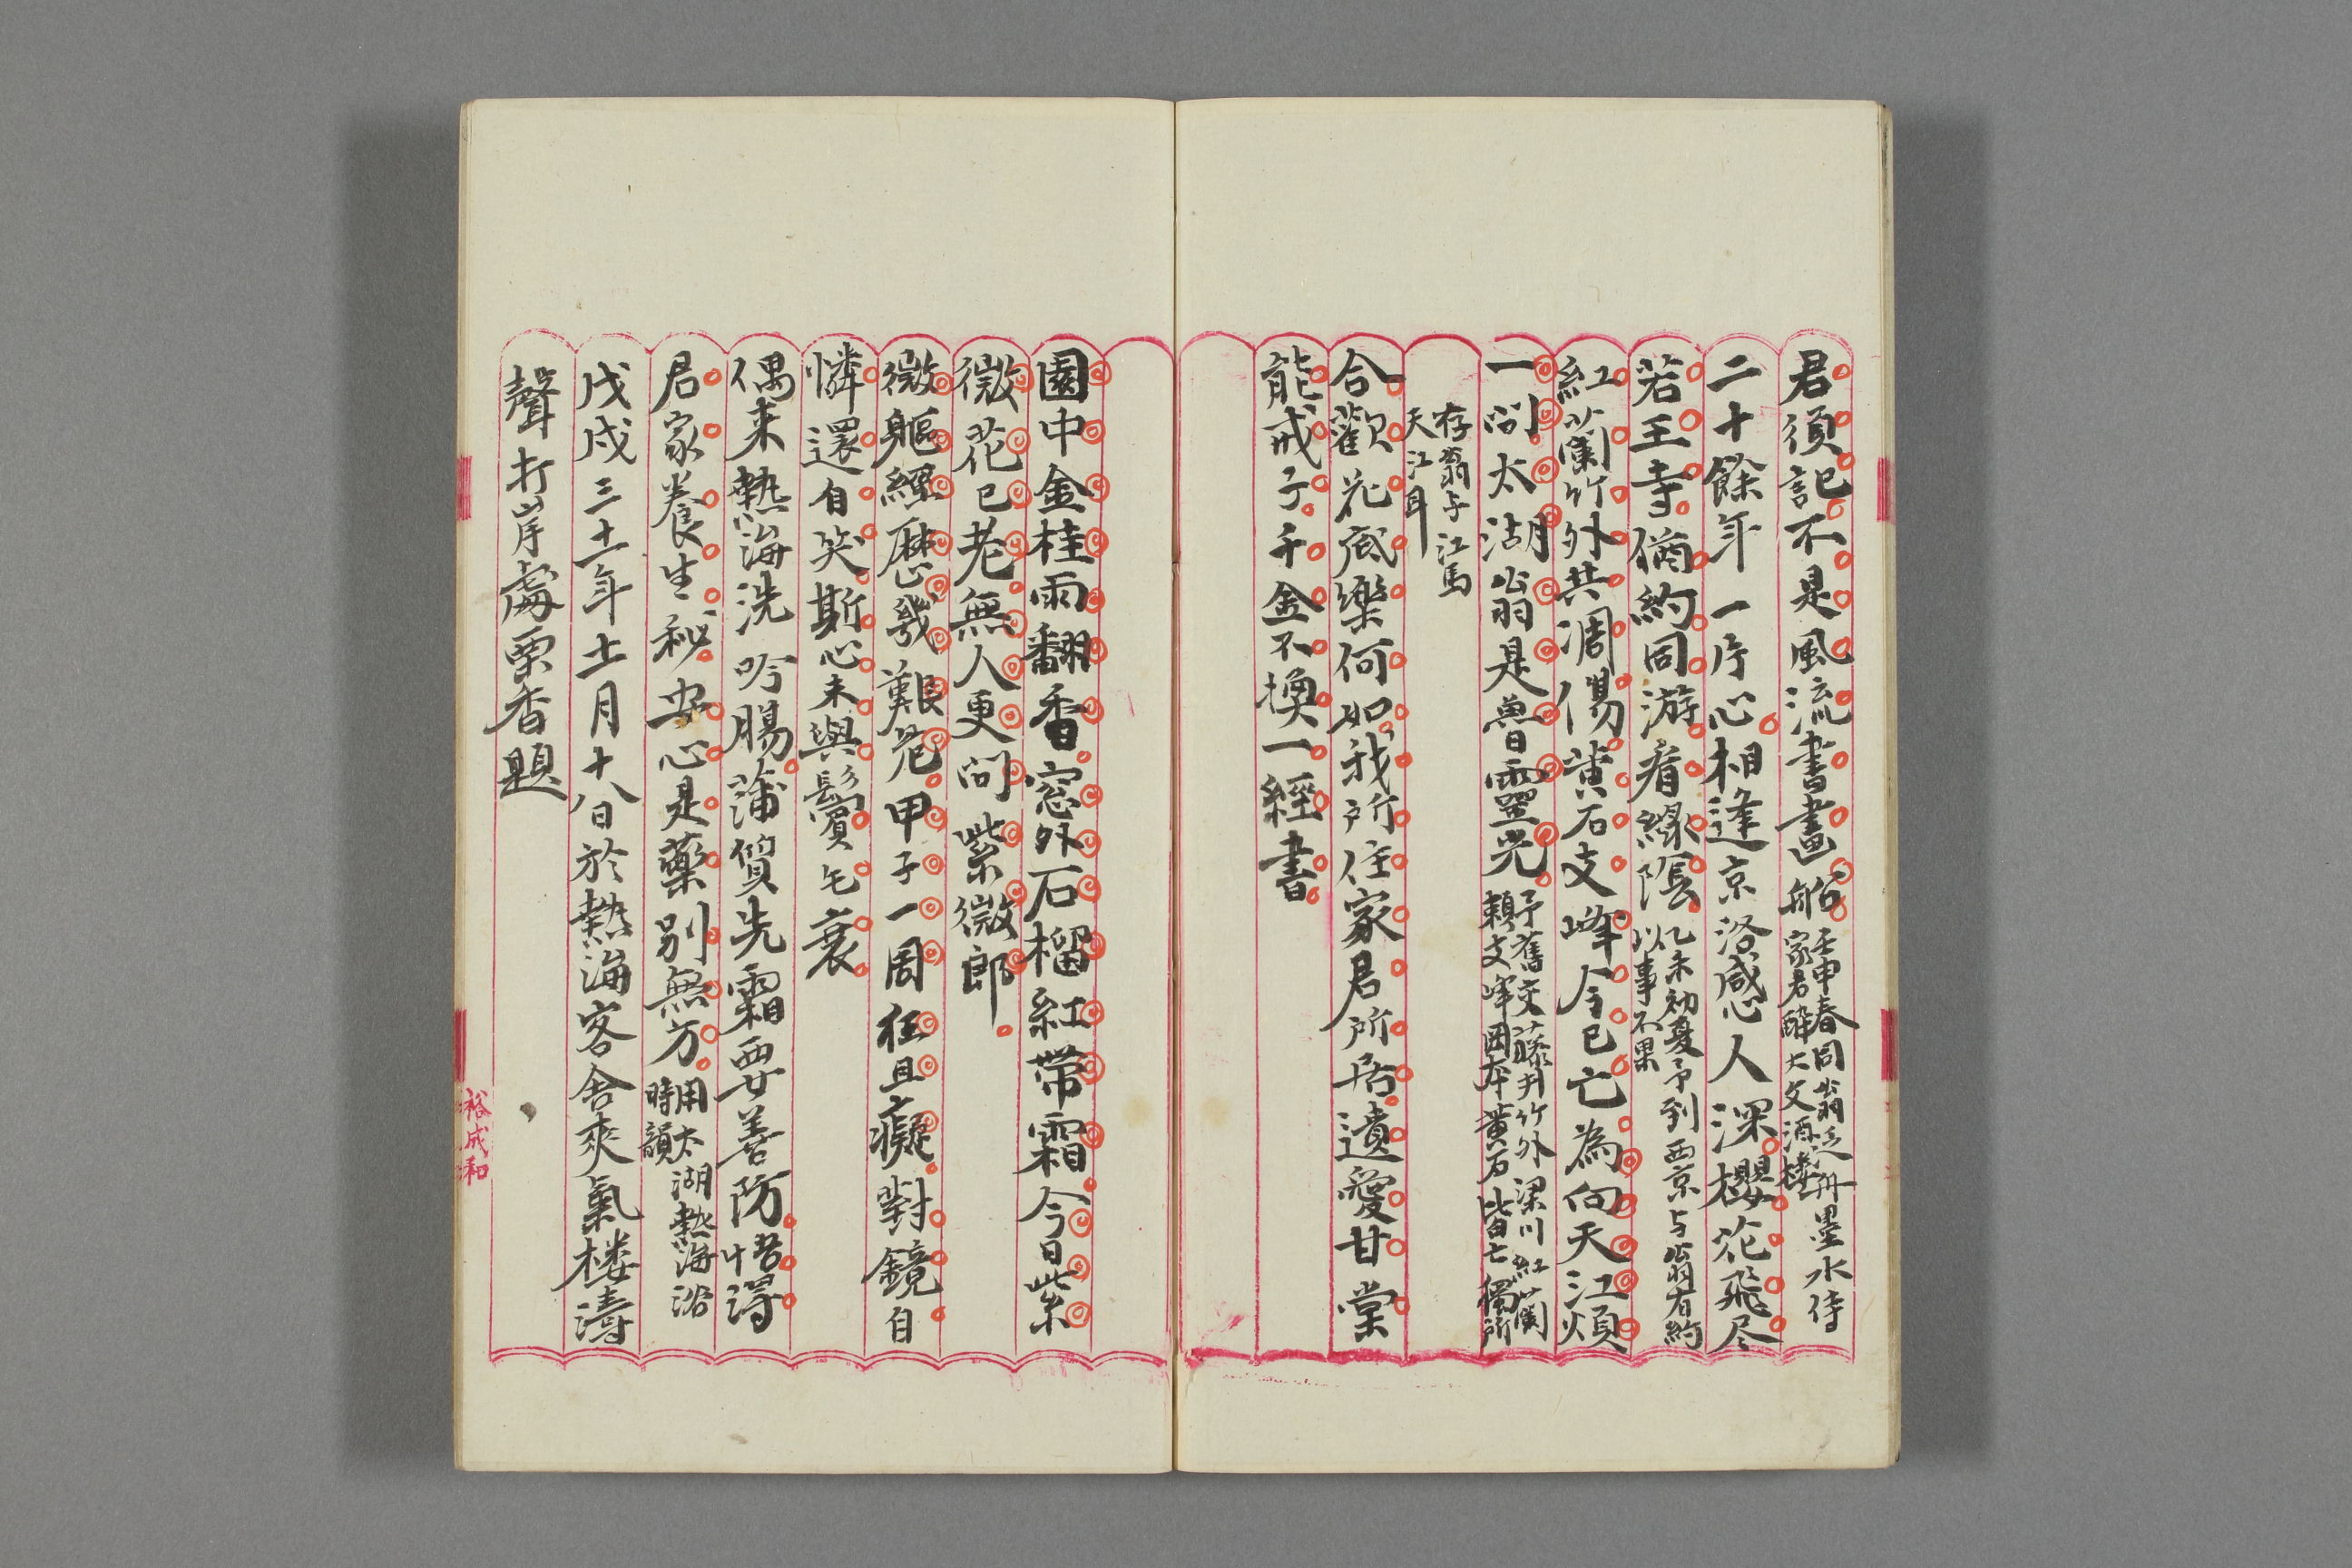 君須記不是風流書畫船壬申春同翁泛舟墨水侍
家君酔大文酒楼
二十餘年一序心相逢京洛感人深櫻花飛尽
若王寺猶約同游看緑陰乙未初夏予到西京与翁有約
以事不果
紅蘭竹外共凋傷黄石支峰今已亡為向天江煩
一問太湖翁是魯靈光予舊交藤井竹外梁川紅蘭
頼支峰岡本黄石皆亡獨所
存翁与江馬
天江耳
合歡花底樂何如我所住家君所居遺愛甘棠
能戒子千金不換一經書
園中金桂雨翻香窓外石榴紅帯霜今日紫
微花已老無人更問紫微郎
微軀經歴幾艱危甲子一周狂且癡對鏡自
憐還自笑斯心未與鬢毛衰
偶来熱海洗吟腸蒲質先霜要善防悟得
君家養生秘安心是藥別無方用太湖熱海浴
時韻
戊戌三十一年十一月十八日於熱海客舎爽氣楼濤
聲打岸處栗香題
裕成和